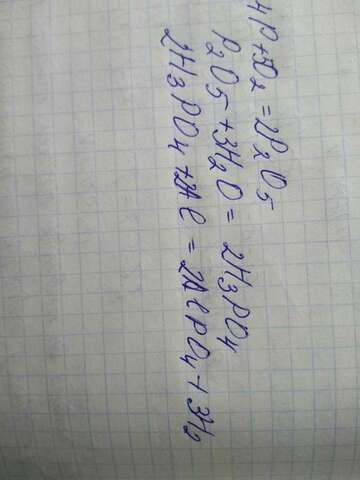 4P+5O2 = 2P2O5
P2O5+3H2O = 2H3PO4
2H3PO4+2Al = 2AlPO4+3H2